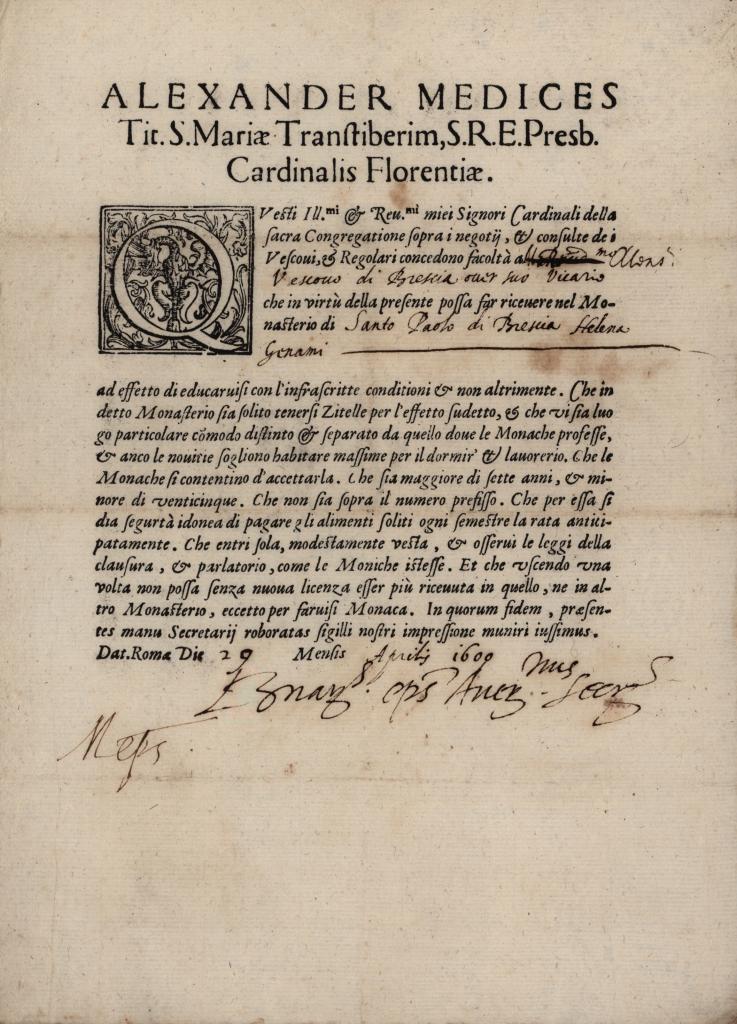 ALEXANDER MEDICES
Tit. S. Mariæ Transtiberim, S.R.E. Presb.
Cardinalis Florentiæ.
QVesti Ill.mi & Reu.mi miei Signori Cardinali della
sacra Congregatione sopra i negotij, & consulte de i
Vescoui, & Regolari concedono facoltà al Mons.r
Vescouo di Brescia ouer suo Vicario
che in virtù della presente possa far riceuere nel Mo-
nasterio di Santo Paolo di Brescia Helena
Genami
ad effetto di educaruisi con l'infrascritte conditioni & non altrimente. Che in
detto Monasterio sia solito tenersi Zitelle per l'effetto sudetto, & che vi sia luo
go particolare cōmodo distinto & separato da quello doue le Monache professe,
& anco le nouitie sogliono habitare massime per il dormir' & lauorerio. Che le
Monache si contentino d'accettarla. Che sia maggiore di sette anni, & mi-
nore di venticinque. Che non sia sopra il numero prefisso. Che per essa si
dia segurtà idonea di pagare gli alimenti soliti ogni semestre la rata antici-
patamente. Che entri sola, modestamente vesta, & osserui le leggi della
clausura, & parlatorio, come le Moniche istesse. Et che vscendo vna
volta non possa senza nuoua licenza esser più riceuuta in quello, ne in al-
tro Monasterio, eccetto per faruisi Monaca. In quorum fidem, præsen-
tes manu Secretarij roboratas sigilli nostri impressione muniri iussimus.
Dat. Romæ Die 29 Mensis Aprilis 1600